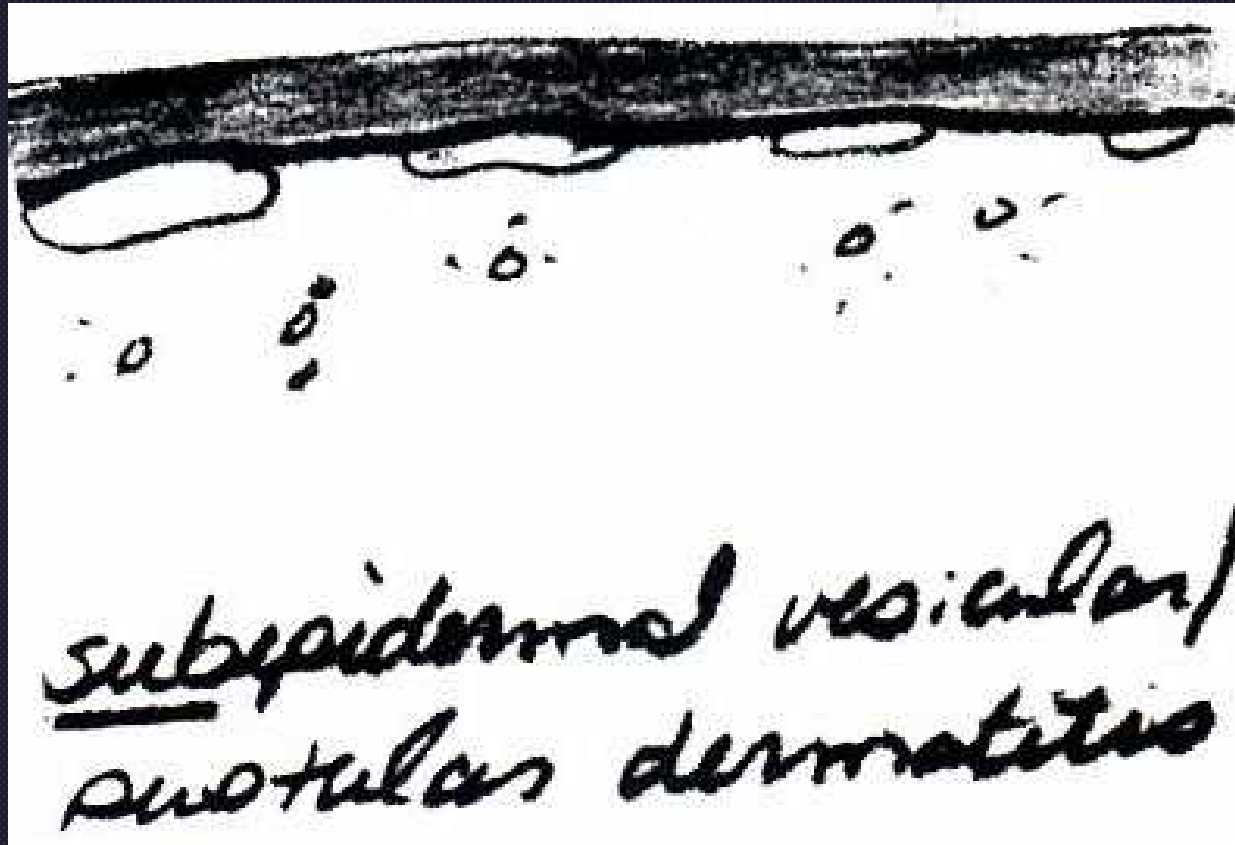 subepidermal vesicular/
pustular dermatitis